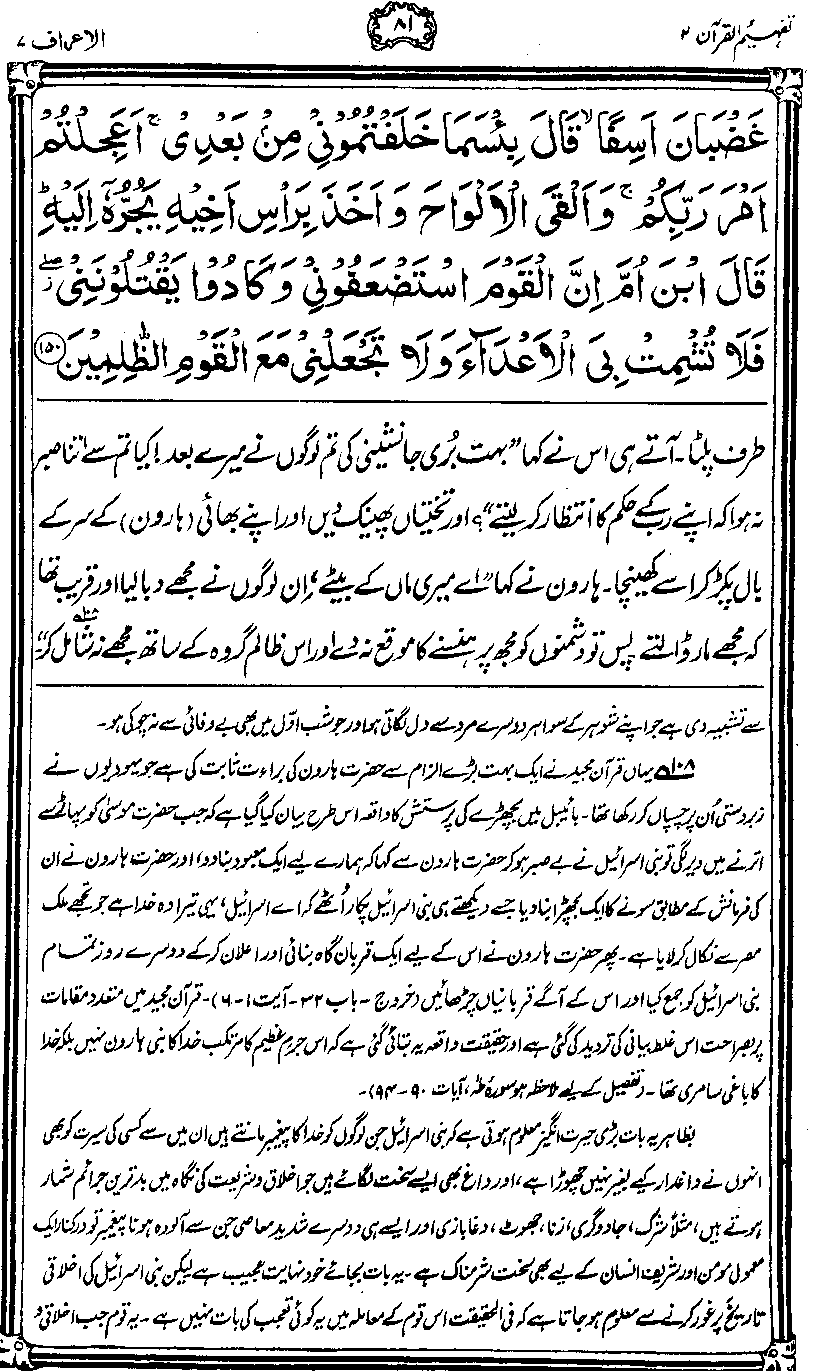 تفہیم القرآن ۲
۸۱
الاعراف ۷
غَضْبَانَ اَسِفًا ۙ قَالَ بِئْسَمَا خَلَفْتُمُوْنِيْ مِنْۢ بَعْدِيْ ۚ اَعَجِلْتُمْ
اَمْرَ رَبِّكُمْ ۚ وَاَلْقَى الْاَلْوَاحَ وَاَخَذَ بِرَاْسِ اَخِيْهِ يَجُرُّهٗٓ اِلَيْهِ ؕ
قَالَ ابْنَ اُمَّ اِنَّ الْقَوْمَ اسْتَضْعَفُوْنِيْ وَكَادُوْا يَقْتُلُوْنَنِيْ ۖ
فَلَا تُشْمِتْ بِيَ الْاَعْدَآءَ وَلَا تَجْعَلْنِيْ مَعَ الْقَوْمِ الظّٰلِمِيْنَ ۱۵۰
طرف پلٹا۔ آتے ہی اس نے کہا ”بہت بُری جانشینی کی تم لوگوں نے میرے بعد! کیا تم سے اتنا صبر
نہ ہوا کہ اپنے رب کے حکم کا انتظار کر لیتے“؟ اور تختیاں پھینک دیں اور اپنے بھائی (ہارون) کے سر کے
بال پکڑ کر اسے کھینچا۔ ہارون نے کہا ”اے میری ماں کے بیٹے، اِن لوگوں نے مجھے دبا لیا اور قریب تھا
کہ مجھے مار ڈالتے۔ پس تو دشمنوں کو مجھ پر ہنسنے کا موقع نہ دے اور اس ظالم گروہ کے ساتھ مجھے نہ شامل کر“۱۰۸
سے تشبیہ دی ہے جو اپنے شوہر کے سوا ہر دوسرے مرد سے دل لگاتی ہو اور جو شب اوّل میں بھی بے وفائی سے نہ چوکی ہو۔
۱۰۸ یہاں قرآن مجید نے ایک بہت بڑے الزام سے حضرت ہارون کی براءت ثابت کی ہے جو یہودیوں نے
زبردستی اُن پر چسپاں کر رکھا تھا۔ بائیبل میں بچھڑے کی پرستش کا واقعہ اس طرح بیان کیا گیا ہے کہ جب حضرت موسیٰ کو پہاڑ سے
اترنے میں دیر لگی تو بنی اسرائیل نے بے صبر ہو کر حضرت ہارون سے کہا کہ ہمارے لیے ایک معبود بنا دو، اور حضرت ہارون نے ان
کی فرمائش کے مطابق سونے کا ایک بچھڑا بنا دیا جسے دیکھتے ہی بنی اسرائیل پکار اُٹھے کہ اے اسرائیل، یہی تیرا وہ خدا ہے جو تجھے ملک
مصر سے نکال کر لایا ہے۔ پھر حضرت ہارون نے اس کے لیے ایک قربان گاہ بنائی اور اعلان کر کے دوسرے روز تمام
بنی اسرائیل کو جمع کیا اور اس کے آگے قربانیاں چڑھائیں (خروج۔ باب ۳۲۔ آیت ۱-۶)۔ قرآن مجید میں متعدد مقامات
پر بصراحت اس غلط بیانی کی تردید کی گئی ہے اور حقیقت واقعہ یہ بتائی گئی ہے کہ اس جرم عظیم کا مرتکب خدا کا نبی ہارون نہیں بلکہ خدا
کا باغی سامری تھا۔ (تفصیل کے لیے ملاحظہ ہو سورۂ طٰہٰ، آیات ۹۰-۹۴)۔
بظاہر یہ بات بڑی حیرت انگیز معلوم ہوتی ہے کہ بنی اسرائیل جن لوگوں کو خدا کا پیغمبر مانتے ہیں ان میں سے کسی کی سیرت کو بھی
انہوں نے داغدار کیے بغیر نہیں چھوڑا ہے، اور داغ بھی ایسے سخت لگائے ہیں جو اخلاق و شریعت کی نگاہ میں بدترین جرائم شمار
ہوتے ہیں، مثلاً شرک، جادوگری، زنا، جھوٹ، دغابازی اور ایسے ہی دوسرے شدید معاصی جن سے آلودہ ہونا پیغمبر تو درکنار ایک
معمولی مومن اور شریف انسان کے لیے بھی سخت شرمناک ہے۔ یہ بات بجائے خود نہایت عجیب ہے لیکن بنی اسرائیل کی اخلاقی
تاریخ پر غور کرنے سے معلوم ہو جاتا ہے کہ فی الحقیقت اس قوم کے معاملہ میں یہ کوئی تعجب کی بات نہیں ہے۔ یہ قوم جب اخلاقی و